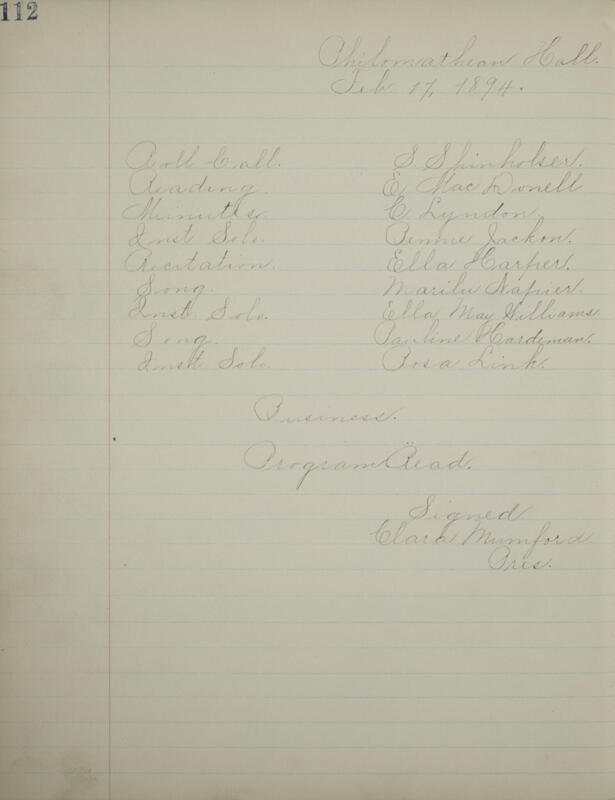 112
Philomathean Hall.
Feb 17, 1894.
Roll Call. S. Spinholser.
Reading. E. Mac Donell
Minutes. C Lyndon.
Inst Solo. Bennie Jackon.
Recitation. Ella Harper.
Song. Marilu Napier.
Inst Solo. Ella May Williams.
Song. Pauline Hardeman.
Inst Solo. Rosa Link.
Business.
Program Read.
Signed
Clara Mumford.
Pres.